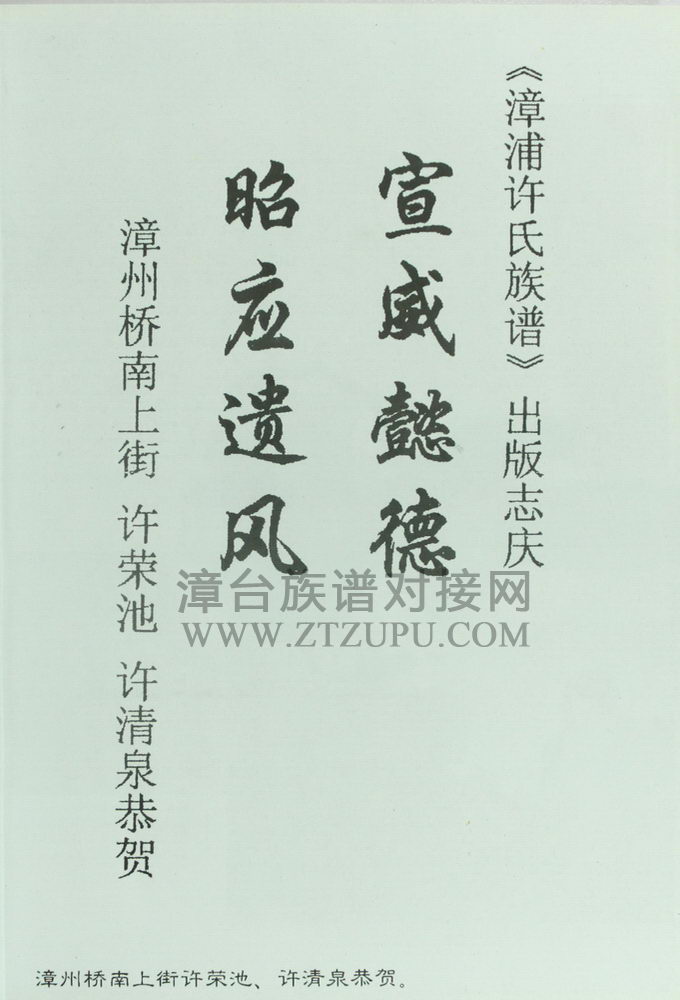 《漳浦许氏族谱》出版志庆
宣威懿德
昭应遗风
漳州桥南上街 许荣池 许清泉恭贺
漳台族谱对接网
WWW.ZTZUPU.COM
漳州桥南上街许荣池、许清泉恭贺。